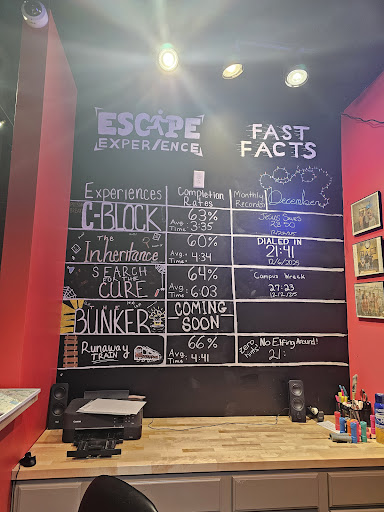 ESCAPE
EXPERIENCE
FAST
FACTS
Experiences
Completion
Rates
Monthly
Records
December
C-BLOCK
63%
Ave.
Time • 3:35
Jesus Saves
The
Inheritance
60%
Avg.
Time • 4:34
DIALED IN
21:41
12/6/2025
SEARCH
FOR THE
CURE
64%
Avg.
Time • 6:03
Campus Wreck
27:23
THE
BUNKER
COMING
SOON
Runaway
TRAIN
66%
Avg.
Time • 4:41
Zero
hints
No Elfing Around!